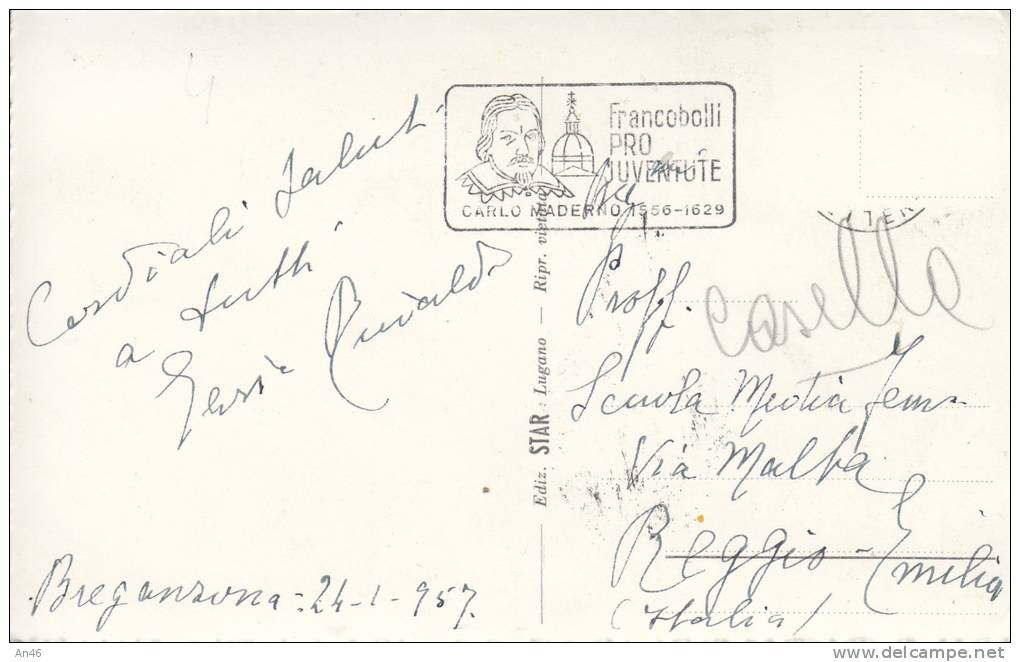 Cordiali saluti
a tutti
Rivaldi
Breganzona: 24-1-957.
Francobolli
PRO
JUVENTUTE
CARLO MADERNO 1556-1629
Ediz. STAR : Lugano — Ripr. vietata
Proff.
Casella
Scuola Media Fem.
Via Malta
Reggio-Emilia
(Italia)
An46
delcampe.net